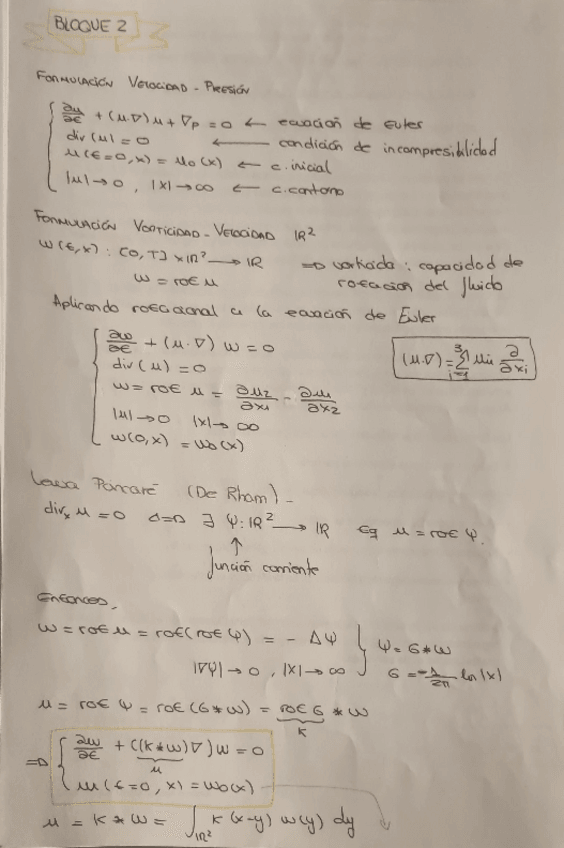 BLOQUE 2
FORMULACIÓN VELOCIDAD - PRESIÓN
∂u/∂t + (u·∇)u + ∇p = 0 ← ecuación de Euler
div (u) = 0 ← condición de incompresibilidad
u(t=0,x) = u₀(x) ← c.inicial
|u| → 0 , |x| → ∞ ← c.contorno
FORMULACIÓN VORTICIDAD - VELOCIDAD IR²
w(t,x) : [0,T] x IR² → IR ⇒ vorticidad : capacidad de
w = rot u rotación del fluido
Aplicando rotacional a la ecuación de Euler
∂w/∂t + (u·∇) w = 0
(u·∇) = ∑³ᵢ₌₁ uᵢ ∂/∂xᵢ
div(u) = 0
w = rot u = ∂u₂/∂x₁ - ∂u₁/∂x₂
|u| → 0 |x| → ∞
w(0,x) = w₀(x)
Lema Poncaré (De Rham) -
divₓ u = 0 ⇔ ∃ ψ: IR² → IR tq u = rot ψ.
↑
función corriente
ENTONCES,
w = rot u = rot(rot ψ) = - Δψ
|∇ψ| → 0 , |x| → ∞
ψ = G * w
G = -1/2π ln |x|
u = rot ψ = rot (G * w) = rot G * w
K
⇒ ∂w/∂t + ((K * w)∇)w = 0
u
w(t=0, x) = w₀(x)
u = K * w = ∫IR² K (x-y) w(y) dy